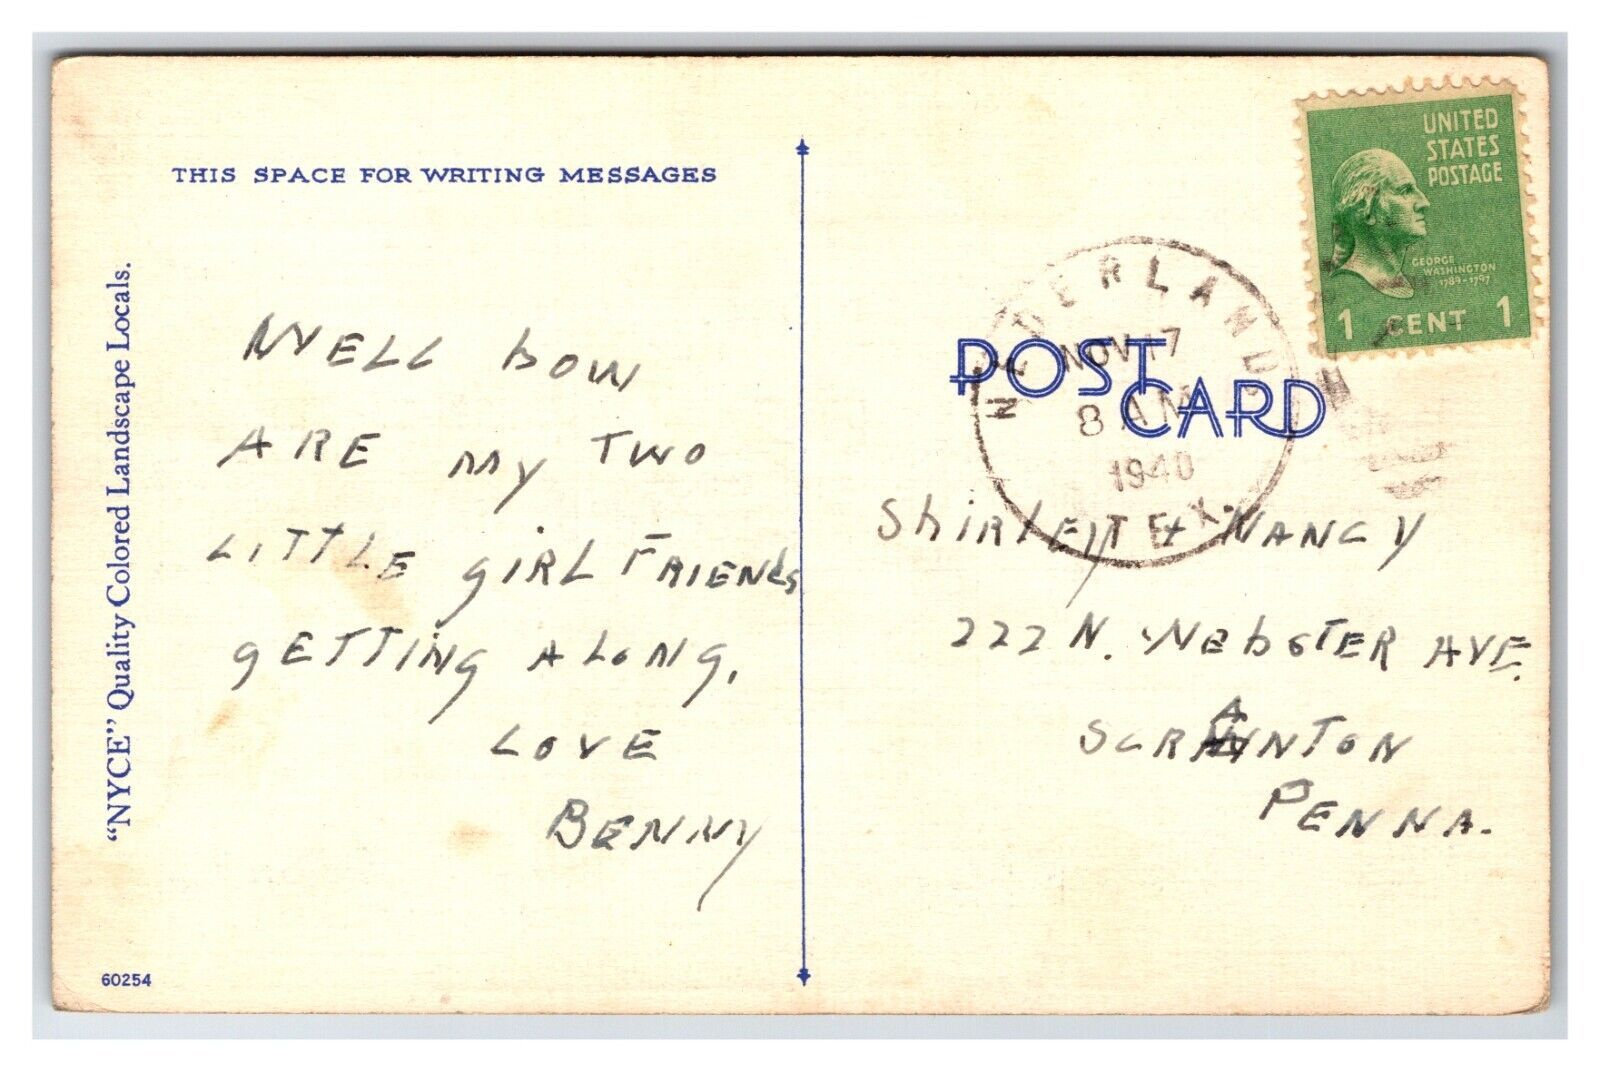 THIS SPACE FOR WRITING MESSAGES
"NYCE" Quality Colored Landscape Locals.
WELL hOW
ARE MY TWO
LITTLE GIRL FRIENdS
gETTING ALONG.
LOVE
BENNY
60254
UNITED
STATES
POSTAGE
GEORGE
WASHINGTON
1789-1797
1 CENT 1
NEDERLAND
NOV 17
8 AM
1940
TEX.
POST
CARD
ShIRLEY + NANCY
222 N. WEbSTER AVE.
SCRANTON
PENNA.